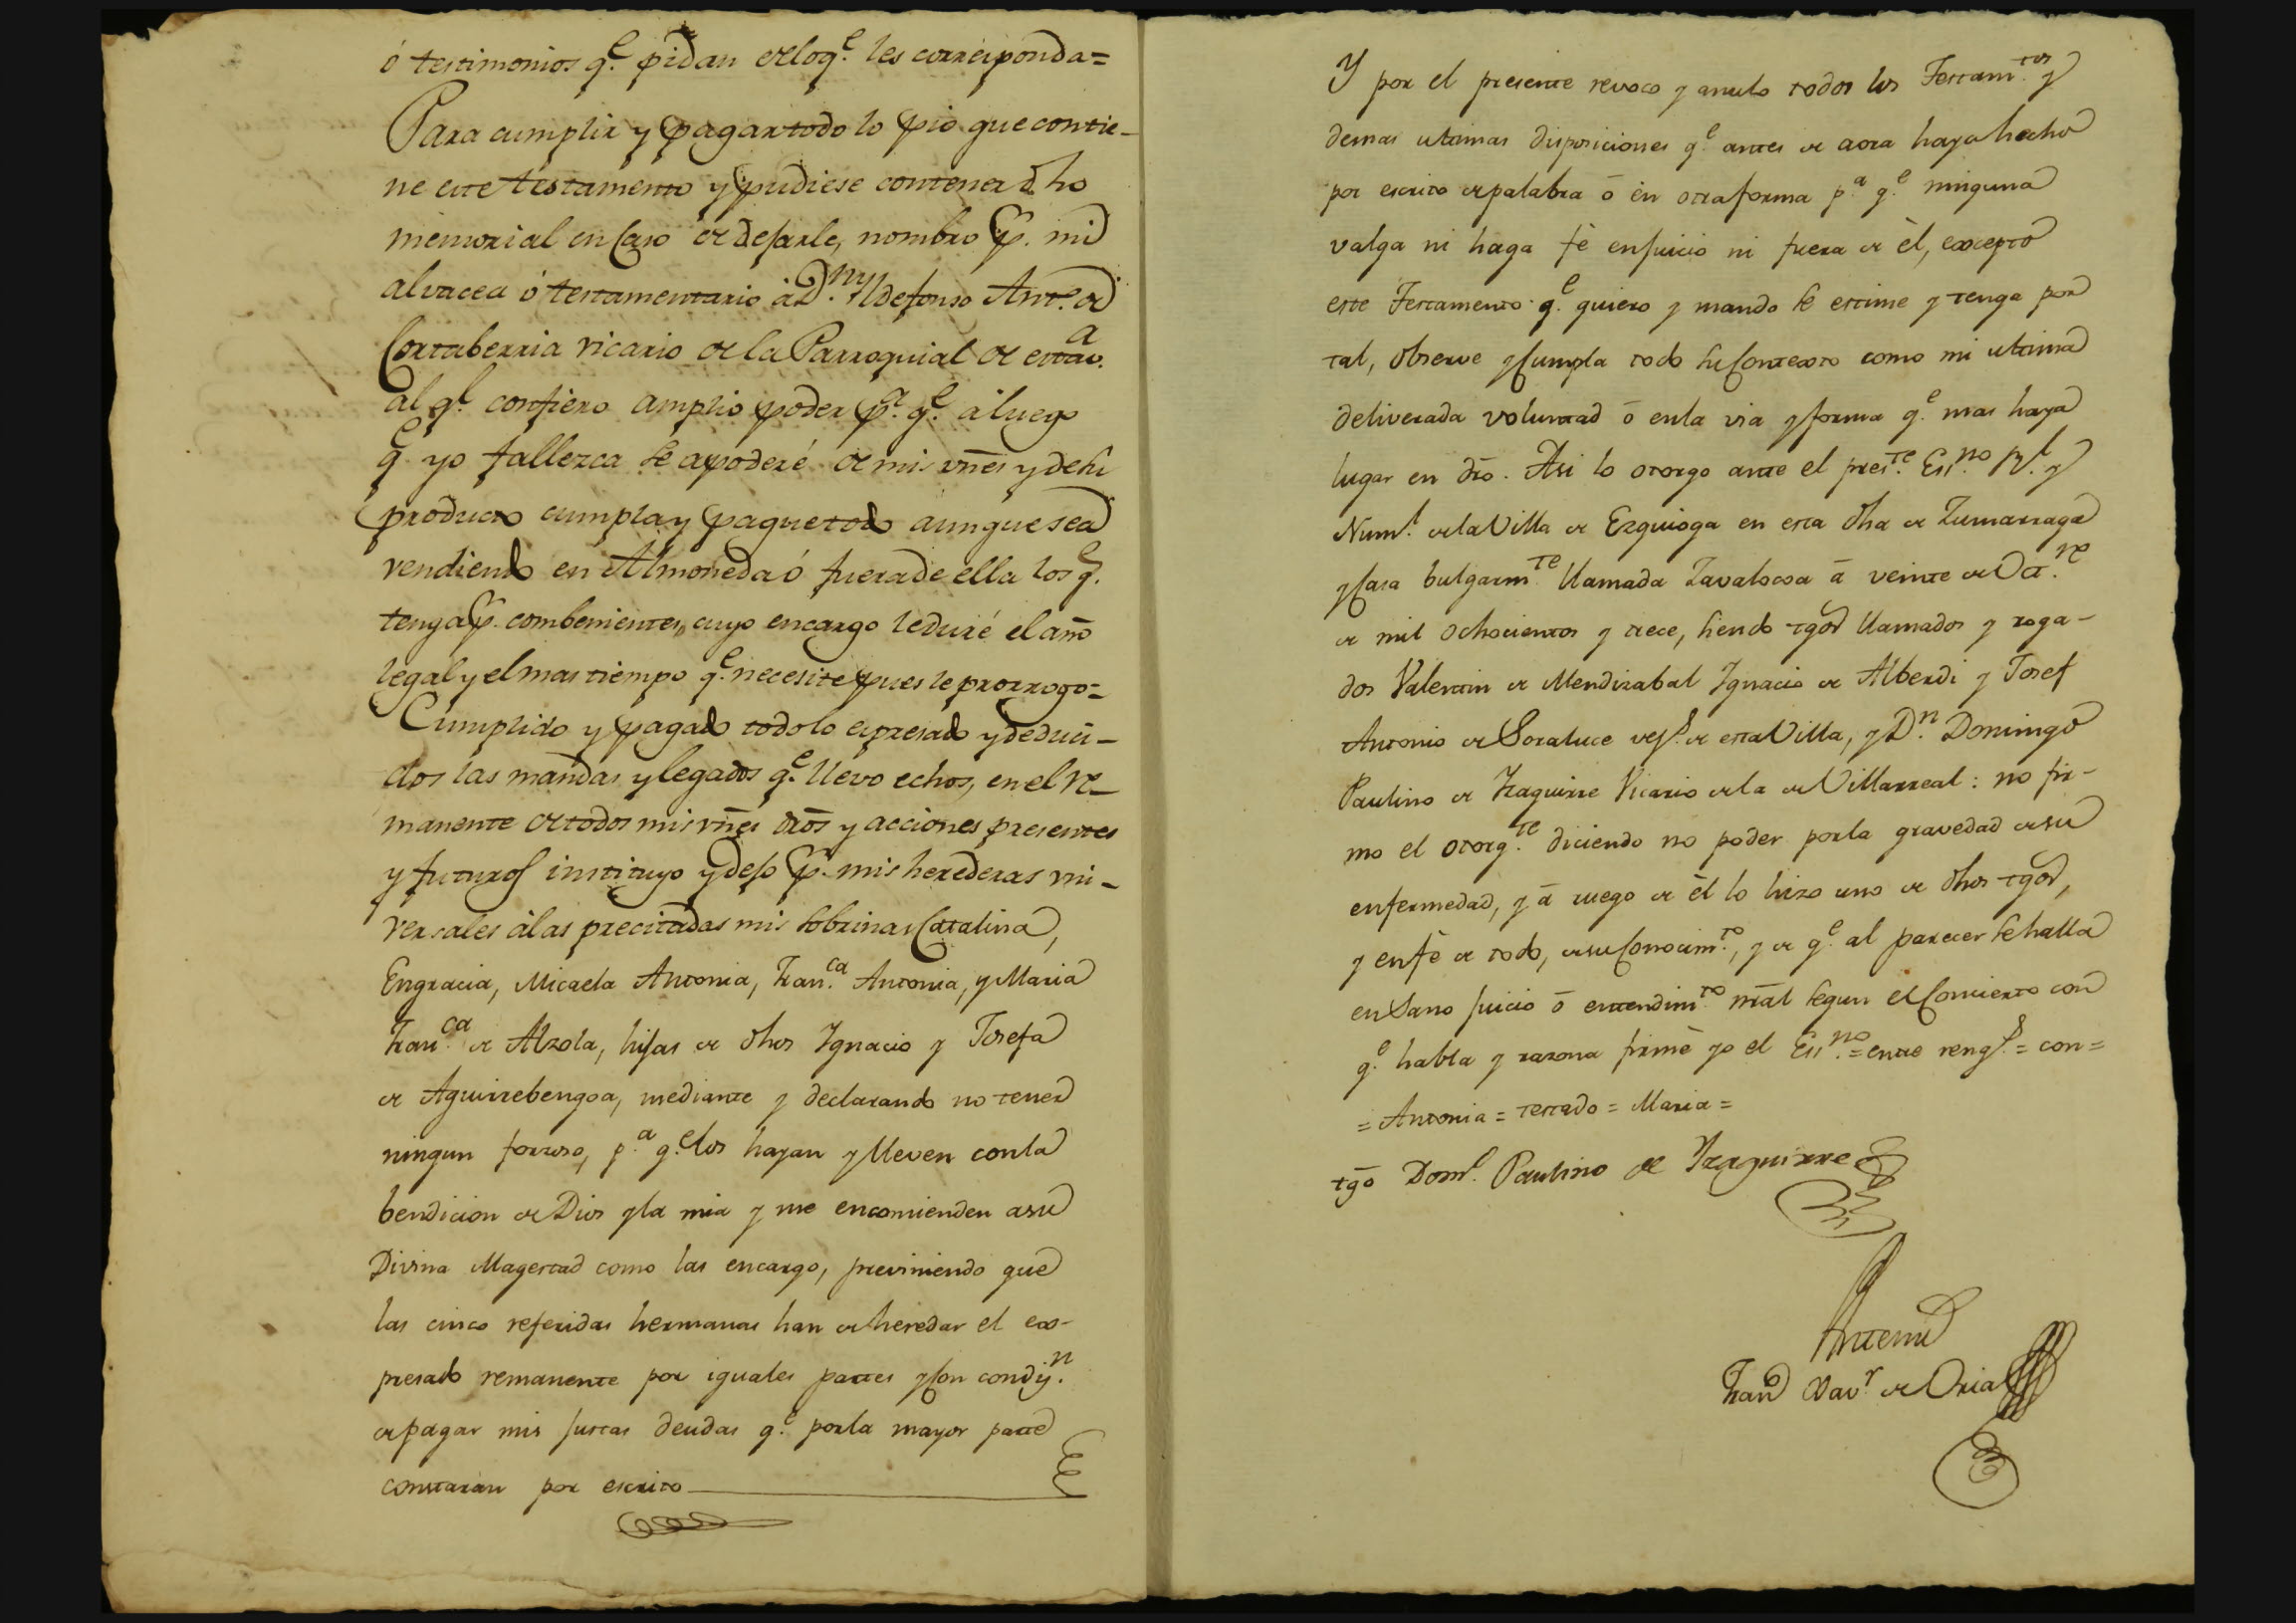 ó testimonios q.e pidan de lo q.e les corresponda=
Para cumplir y pagar todo lo pio que contie-
ne este testamento y pudiese contener dho
memorial en caso de dejarle, nombro p.r mi
alvacea ó testamentario à D.n Yldefonso Ant.o de
Cortaberria vicario de la Parroquial de esta v.a
al q.l confiero amplio poder p.a q.e a luego
q.e yo fallezca se apoderé de mis vñes y de su
producto cumpla y pague todo aunque sea
vendiendo en Almoneda ó fuera de ella los q.e
tenga p.r combenientes, cuyo encargo le duré el año
legal y el mas tiempo q.e necesite pues le prorrogo=
Cumplido y pagado todo lo expresado y deduci-
dos las mandas y legados q.e llevo echos, en el re-
manente de todos mis vñes dros y acciones presentes
y futuros instituyo y dejo p.r mis herederas vni-
versales à las precitadas mis sobrinas Catalina,
Engracia, Micaela Antonia, Fran.ca Antonia, y Maria
Fran.ca de Alzola, hijas de dhos Ygnacio y Josefa
de Aguirrebengoa, mediante y declarando no tener
ningun forzoso, p.a q.e los hayan y lleven con la
bendicion de Dios y la mia y me encomienden a su
Divina Magestad como las encargo, previniendo que
las cinco referidas hermanas han de heredar el ex-
presado remanente por iguales partes y con condiz.n
de pagar mis justas deudas q.e por la mayor parte
constaran por escrito
Y por el presente revoco y anulo todos los Testam.tos y
demas ultimas disposiciones q.e antes de aora haya hecho
por escrito de palabra ó en otra forma p.a q.e ninguna
valga ni haga fè en juicio ni fuera de èl, excepto
este Testamento q.e quiero y mando se estime y tenga por
tal, observe y cumpla todo su contexto como mi ultima
deliverada voluntad ó en la via y forma q.e mas haya
lugar en dro. Asi lo otorgo ante el pres.te Ess.no R.l y
Num.l de la Villa de Ezquioga en esta dha de Zumarraga
y casa bulgarm.te llamada Zavalocoa à veinte de Oct.re
de mil ochocientos y trece, siendo tgos llamados y roga-
dos Valentin de Mendizabal Ygnacio de Alberdi y Josef
Antonio de Soraluce vez.s de esta Villa, y D.n Domingo
Paulino de Yzaguirre Vicario de la de Villarreal: no fir-
mo el otorg.te diciendo no poder por la gravedad de su
enfermedad, y à ruego de èl lo hizo uno de dhos tgos,
y en fè de todo, de su conocim.to, y de q.e al parecer se halla
en sano juicio ó entendim.to nrãl segun el concierto con
q.e habla y razona firmè yo el Ess.no = entre reng.s = con =
= Antonia = testado = Maria =
tgo Dom.o Paulino de Yzaguirre
Antemi
Fran.co Xav.r de Oria